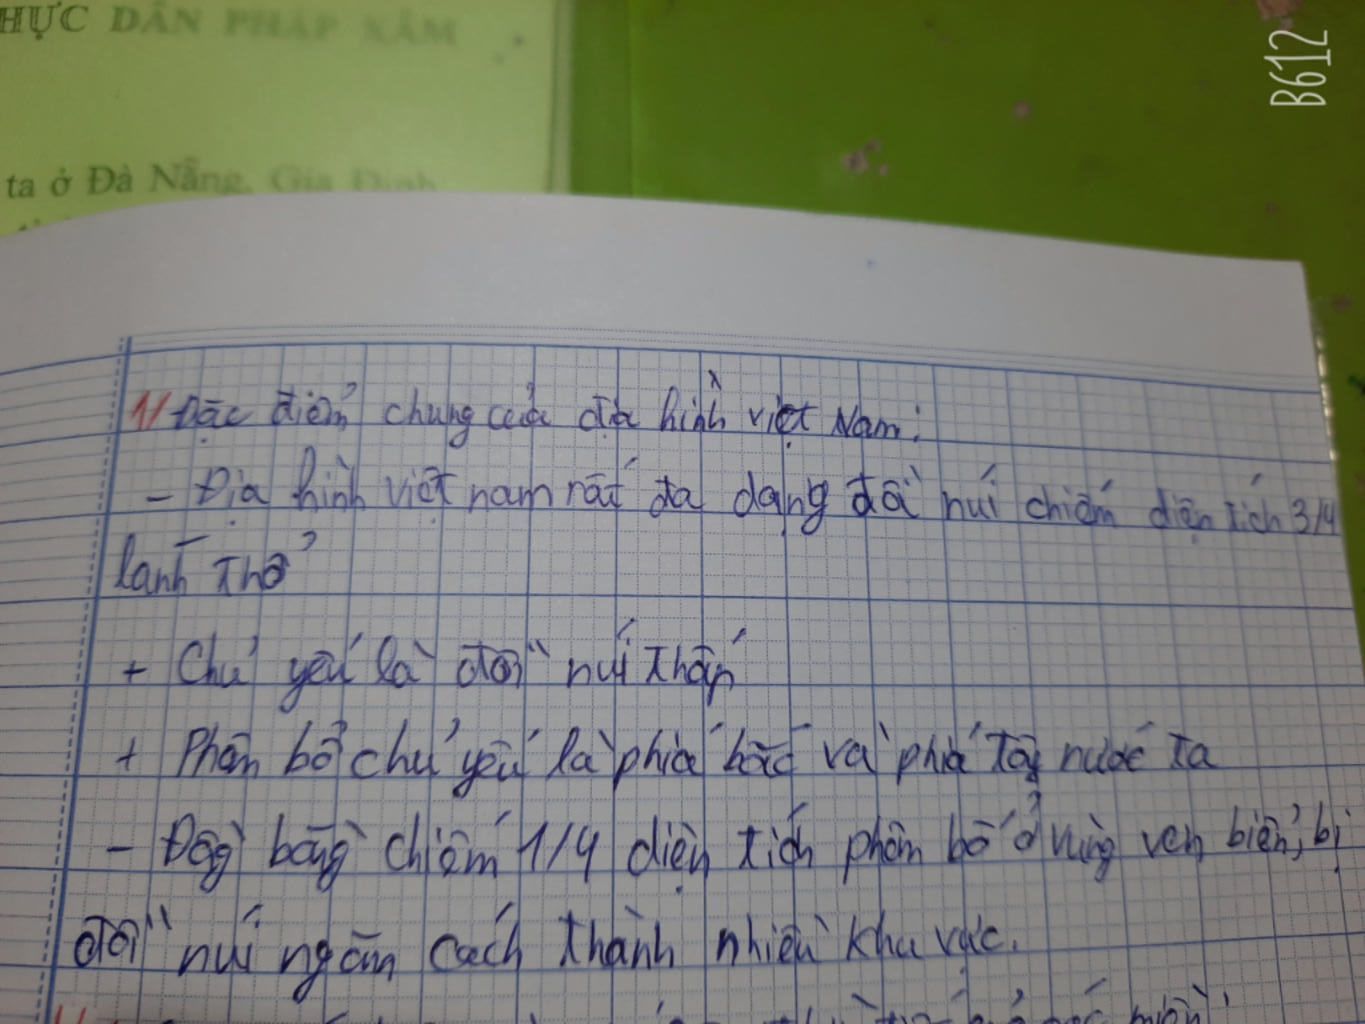 HỰC DÂN PHÁP XÂM
ta ở Đà Nẵng, Gia Định
B612
1/ Đặc điểm chung của địa hình việt Nam:
- Địa hình việt nam rất đa dạng đồi núi chiếm diện tích 3/4
lãnh thổ
+ Chủ yếu là đồi núi thấp
+ Phân bố chủ yếu là phía bắc và phía tây nước ta
- Đồng bằng chiếm 1/4 diện tích phân bố ở vùng ven biển, bị
đồi núi ngăn cách thành nhiều khu vực.